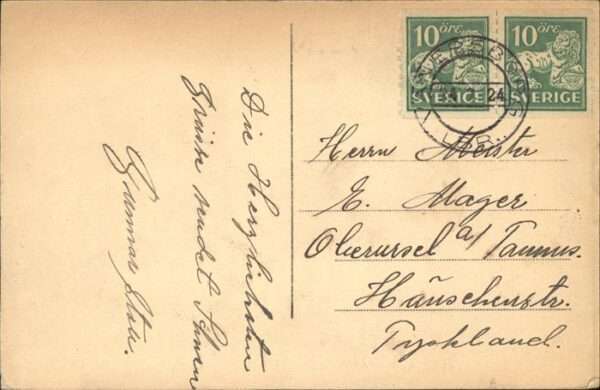 Die Herzlichsten
Grüsse sendet Ihnen
Gunnar
10 ÖRE
SVERIGE
10 ÖRE
SVERIGE
24
Herrn Meister
E. Mager
Oberursel a/ Taunus.
Häuschenstr.
Tyskland.